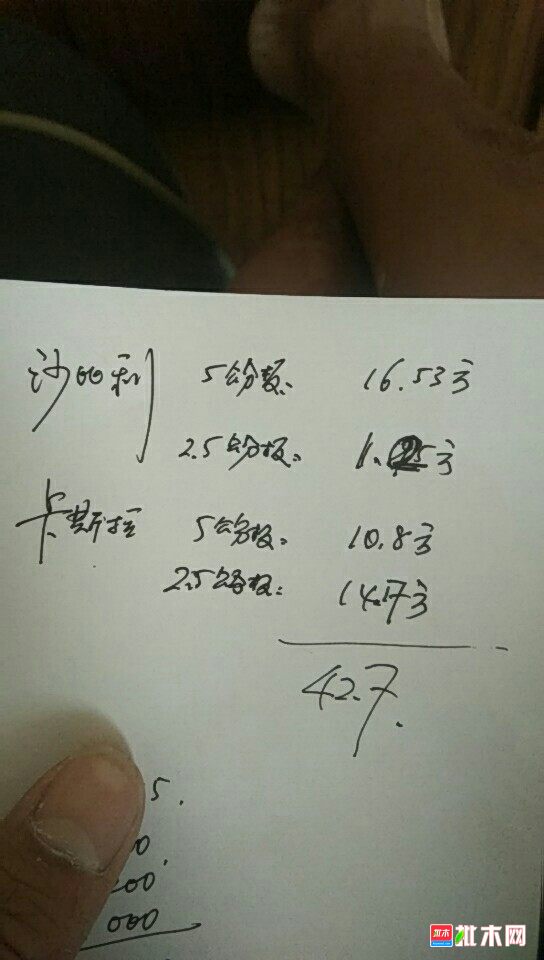 沙比利 5公分板: 16.53方
2.5公分板: 1.25方
卡斯拉 5公分板: 10.8方
2.5公分板: 14.17方
42.7
5.
00.
00
000
批木网